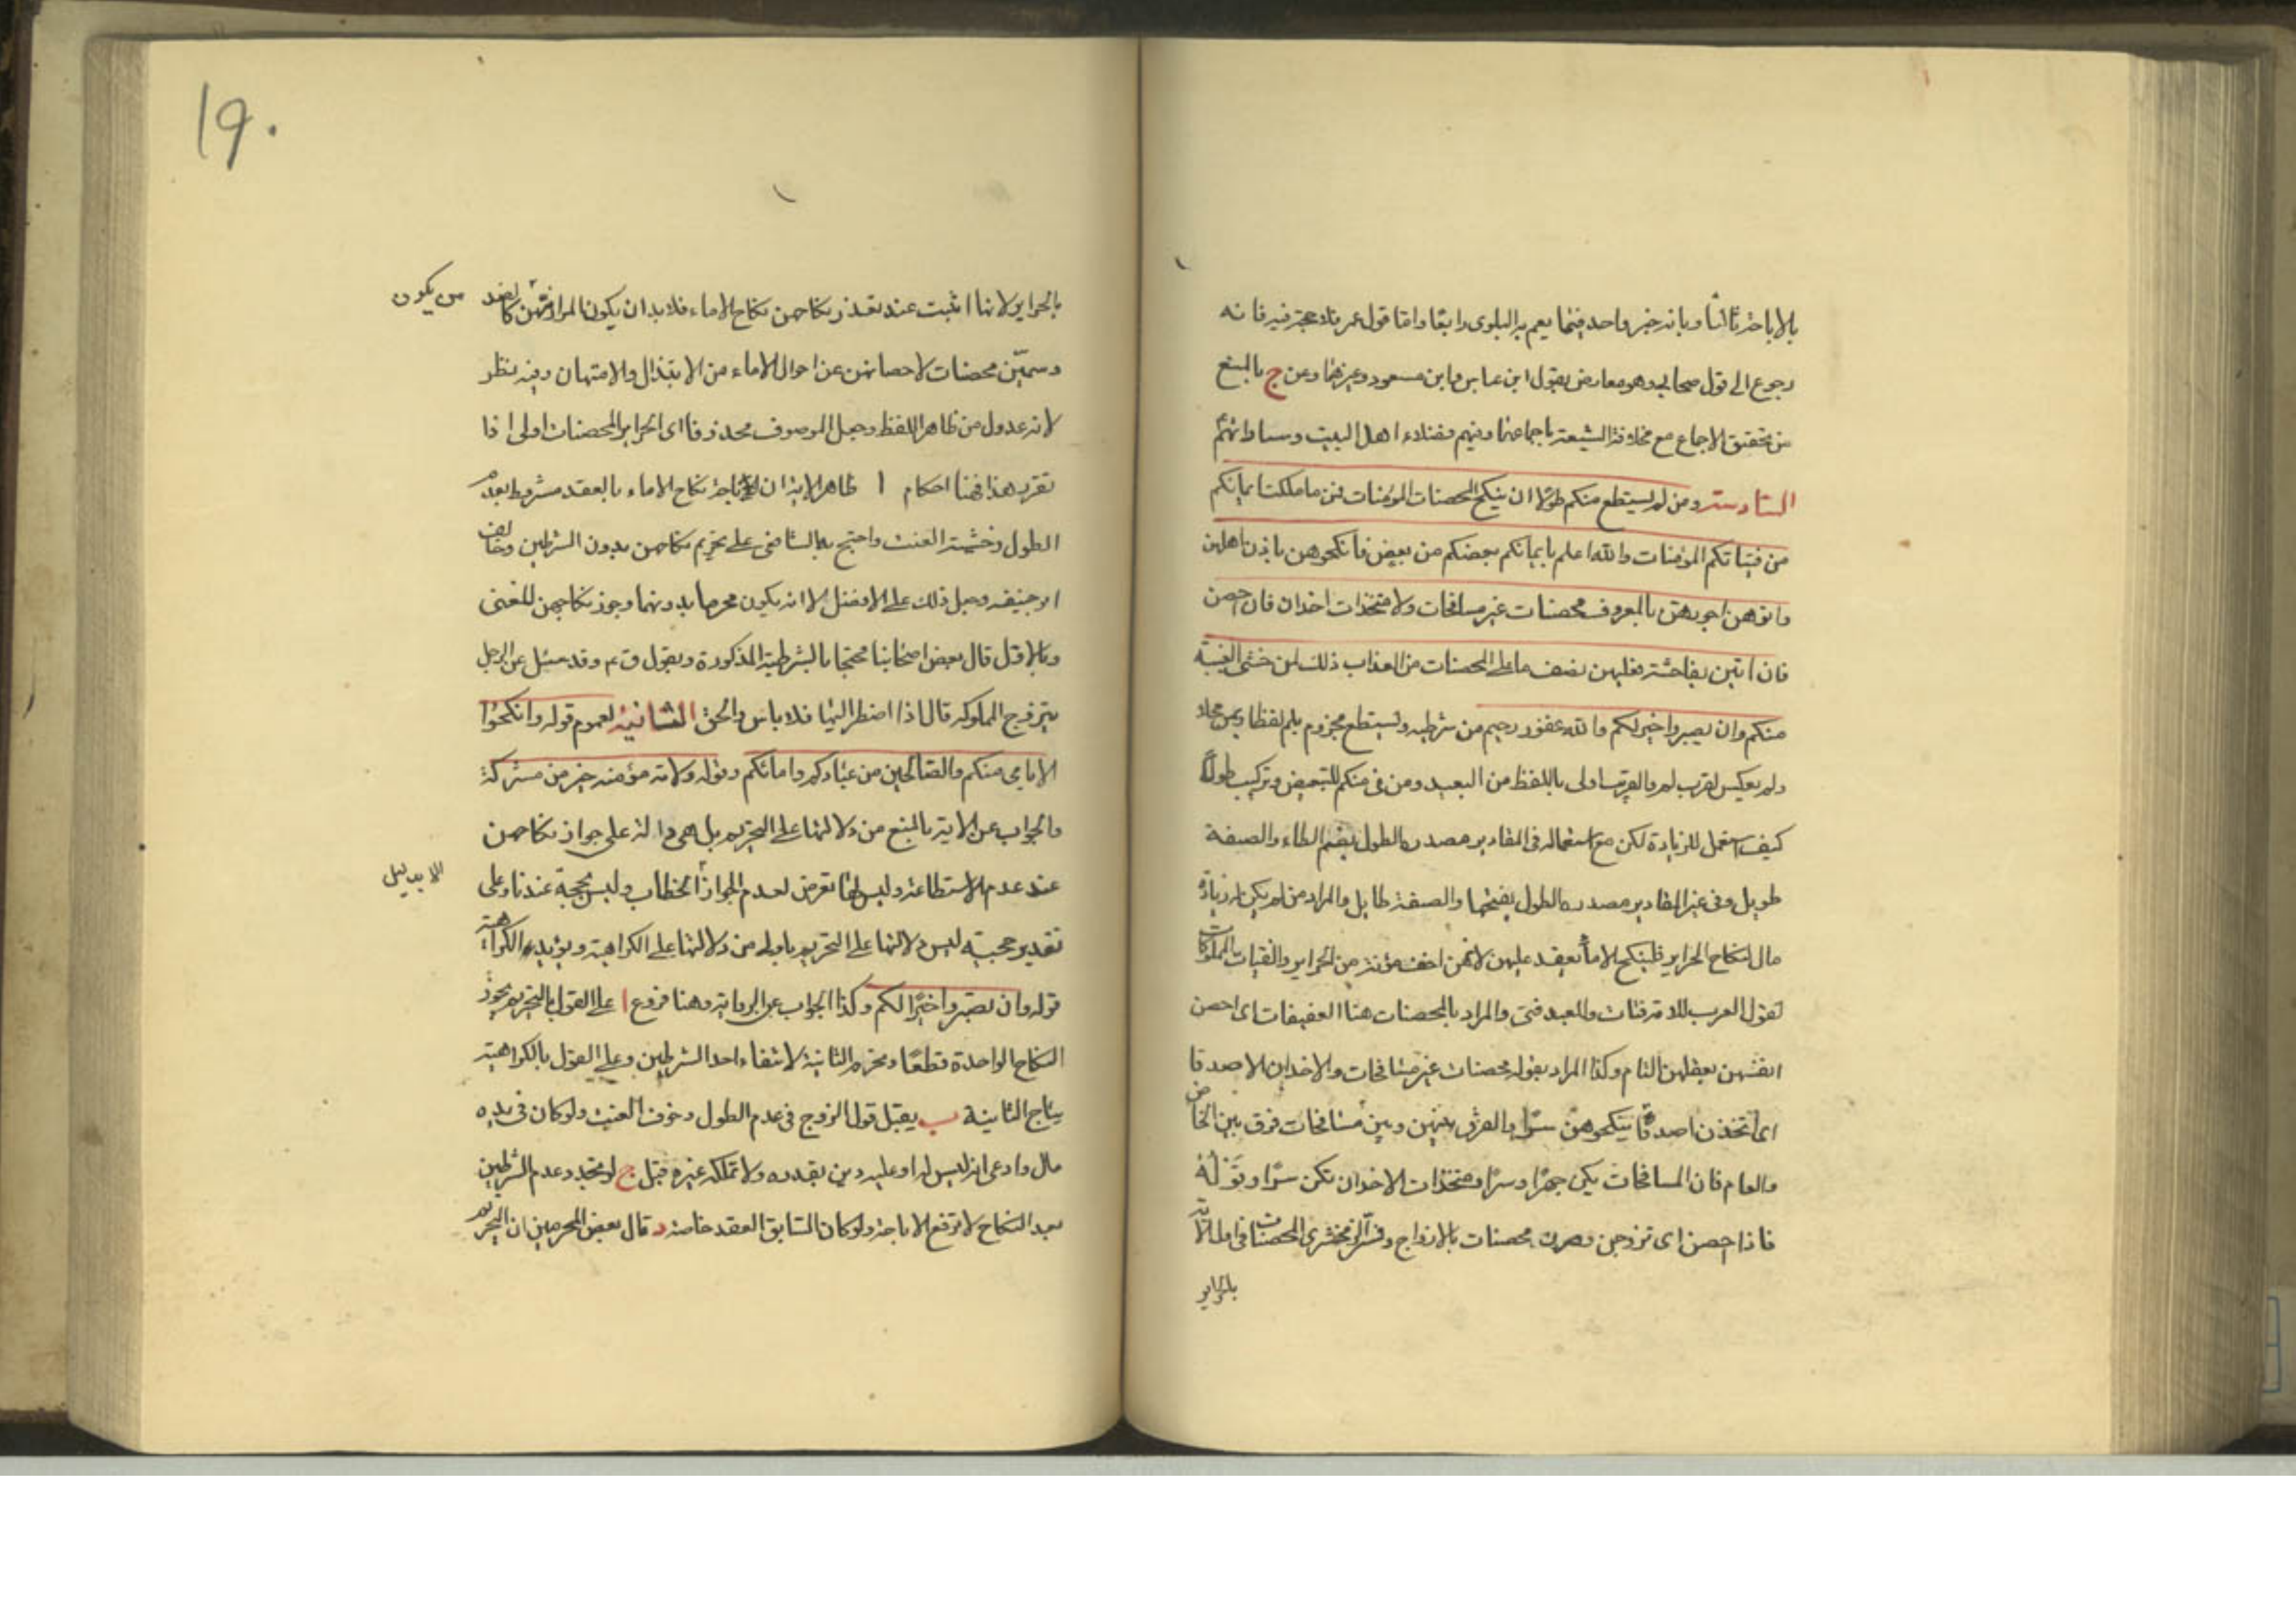 بالاباحة ثالثا وبانه خبر واحد فيما يعم به البلوى رابعا واما قول عمر فلا حجة فيه فانه
رجوع الى قول صحابي وهو معارض بقول ابن عباس وابن مسعود وغيرهما وعن ج بالمنع
من تحقق الاجماع مع مخالفة الشيعة باجماعها وفيهم فضلاء اهل البيت وساداتهم
السادسة ومن لم يستطع منكم طولا ان ينكح المحصنات المؤمنات فمن ما ملكت ايمانكم
من فتياتكم المؤمنات والله اعلم بايمانكم بعضكم من بعض فانكحوهن باذن اهلهن
واتوهن اجورهن بالمعروف محصنات غير مسافحات ولا متخذات اخدان فان احصن
فان اتين بفاحشة فعليهن نصف ما على المحصنات من العذاب ذلك لمن خشى العنت
منكم وان تصبروا خير لكم والله غفور رحيم من شرطيه ويستطع مجزوم بلم لفظا وبمن محلا
ولم يعكس لقرب لم والقريب اولى باللفظ من البعيد ومن في منكم للتبعيض وتركيب طولا
كيف استعمل للزيادة لكن مع استعماله في المقادير مصدره الطول بضم الطاء والصفة
طويل وفي غير المقادير مصدره الطول بفتحها والصفة طايل والمراد من لم يكن له زيادة
مال لنكاح الحراير فلينكح الاماء بعقد عليهن لانهن اخف مؤنة من الحراير والفتيات المملوكات
تقول العرب للامة فتاة وللعبد فتى والمراد بالمحصنات هنا العفيفات اى احصن
انفسهن بعقلهن التام وكذا المراد بقوله محصنات غير مسافحات والاخدان الاصدقا
اى تتخذن اصدقا ينكحوهن سرا والفرق بينهن وبين مسافحات فرق بين الخاص
والعام فان المسافحات يكن جهرا وسرا ومتخذات الاخدان تكن سرا وقوله
فاذا احصن اى تزوجن وصرن محصنات بالازواج وفسر الزمخشرى المحصنات في اول الاية
بالحراير
19.
بالحراير لانها اثبت عند تعذر نكاحهن نكاح الاماء فلا بد ان يكون المراد من يكون كالضد
من يكون
وسمين محصنات لاحصانهن عن احوال الاماء من الابتذال والامتهان وفيه نظر
لانه عدول من ظاهر اللفظ وجعل الموصوف محذوفا اى الحراير المحصنات اولى اذا
تقرر هذا فهنا احكام ا ظاهر الاية ان اباحة نكاح الاماء بالعقد مشروط بعدم
الطول وخشية العنت واحتج به الشافعى على تحريم نكاحهن بدون الشرطين وخالف
ابو حنيفه وحمل ذلك على الافضل لا انه يكون محرما بدونهما وجوز نكاحهن للغنى
وبالاول قال بعض اصحابنا محتجا بالشرطية المذكورة وبقول ق ع م وقد سئل عن الرجل
يتزوج المملوكه قال اذا اضطر اليها فلا باس والحق الثانية لعموم قوله وانكحوا
الايامى منكم والصالحين من عبادكم وامائكم وقوله ولامة مؤمنة خير من مشركة
والجواب عن الاية بالمنع من دلالتها على التحريم بل هى دالة على جواز نكاحهن
عند عدم الاستطاعة وليس لها تعرض لعدم الجواز الا بدليل الخطاب وليس بحجة عندنا وعلى
الا بدليل
تقدير حجيته ليس دلالتها على التحريم باولى من دلالتها على الكراهية ويؤيد الكراهية
قوله وان تصبروا خير لكم وكذا الجواب عن الرواية وهنا فروع ا على القول بالتحريم يجوز
النكاح الواحدة قطعا ويحرم الثانية لانتفاء احد الشرطين وعلى القول بالكراهية
يباح الثانية ب يقبل قول الزوج في عدم الطول وخوف العنت ولو كان في يده
مال وادعى انه ليس له او عليه دين بقدره ولا تملكه غيره قبل ج لو تجدد عدم الشرطين
بعد النكاح لا ترتفع الاباحة ولو كان السابق العقد خاصة د قال بعض المحرمين ان التحريم